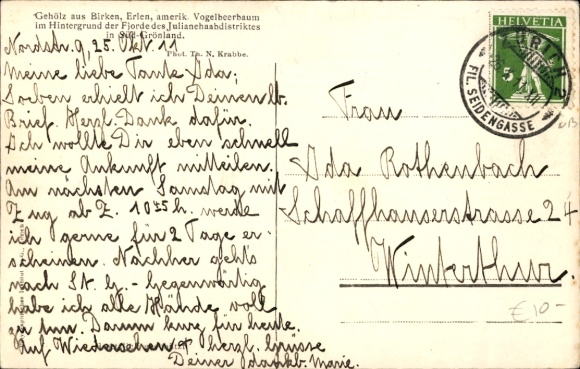 Gehölz aus Birken, Erlen, amerik. Vogelbeerbaum
im Hintergrund der Fjorde des Julianehaabdistriktes
in Süd-Grönland.
Phot. Th. N. Krabbe.
Nordstr. 9, 25. Okt. 11
Meine liebe Tante Ida;
Soeben erhielt ich Deinen lb.
Brief. Herzl. Dank dafür.
Ich wollte Dir eben schnell
meine Ankunft mitteilen.
Am nächsten Samstag mit
Zug ab Z. 10 h. werde
ich gerne für 2 Tage er-
scheinen. Nachher geht's
nach St. G. - Gegenwärtig
habe ich alle Hände voll
zu tun. Darum kurz für heute.
Auf Wiedersehen + herzl. Grüsse
Deiner dankb. Marie.
HELVETIA
5
ZÜRICH 2
FIL. SEIDENGASSE
Frau
Ida Rothenbach
Schaffhauserstrasse 24
Winterthur.
€ 10-